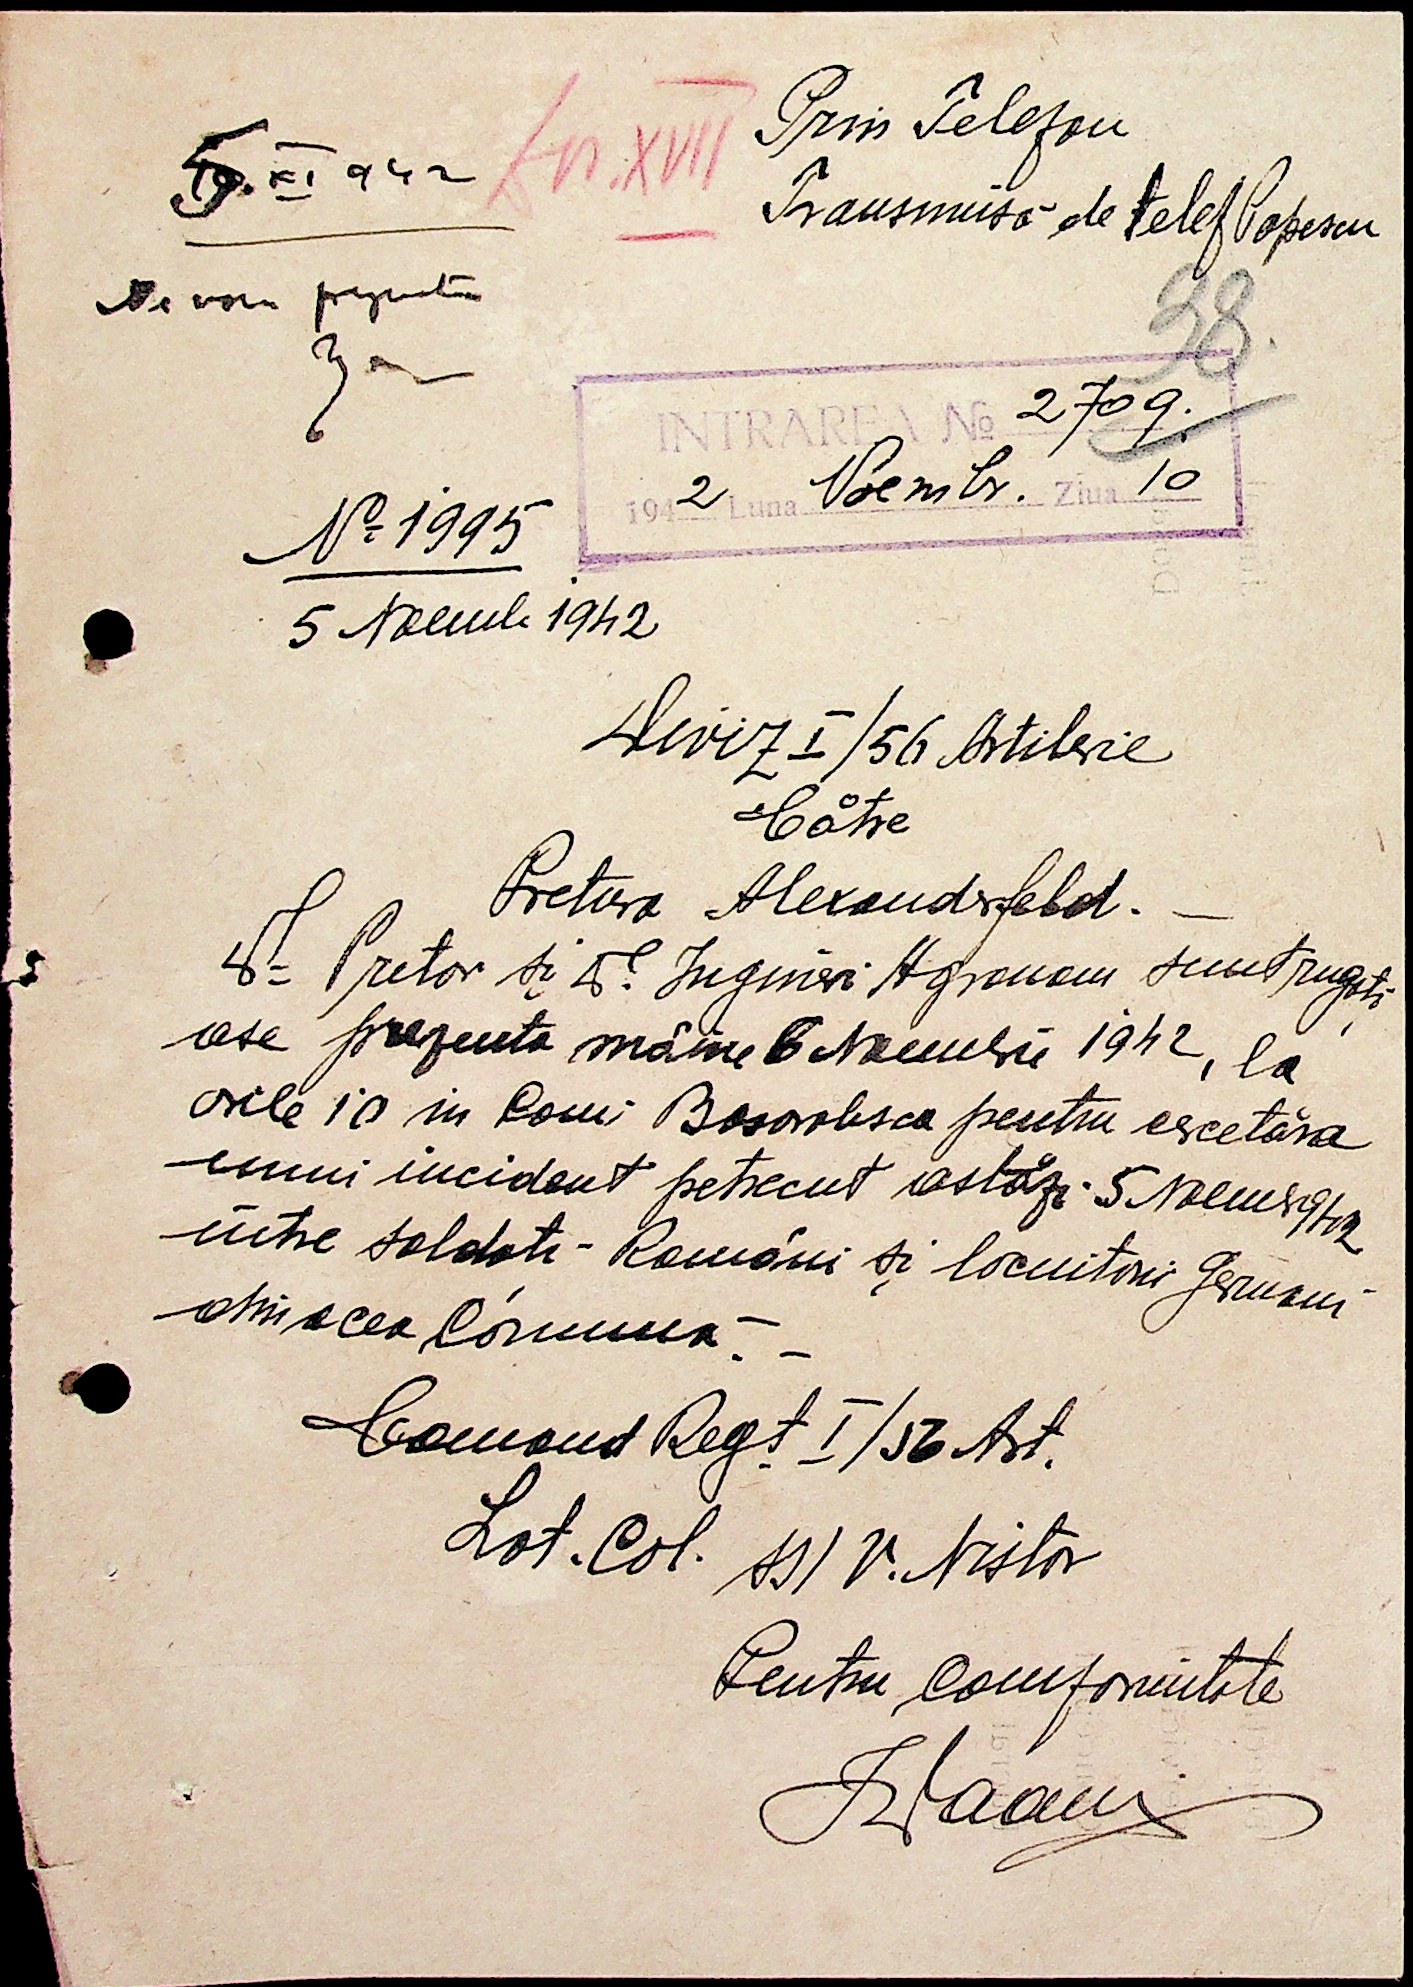 Prin Telefon
Transmisă de telef Popescu
XI 942
XVII
Ne vom prezenta
38.
INTRAREA № 2709.
1942 Luna Noembr. Ziua 10
Nº 1995
5 Noemb. 1942
Diviz I/56 Artilerie
Către
Pretura Alexanderfeld. —
Dl Pretor și Dl. Ingineri Agronom sunt rugați
ase prezenta mâine 6 Noembrie 1942, la
orile 10 in Com. Basarabsca pentru cercetarea
unui incident petrecut astăzi 5 Noembr 942
intre soldati Români și locuitorii Germani
din acea Comuna. —
Comand Regt. I/56 Art.
Lot. Col. ss/ V. Nistor
Pentru Comformitate